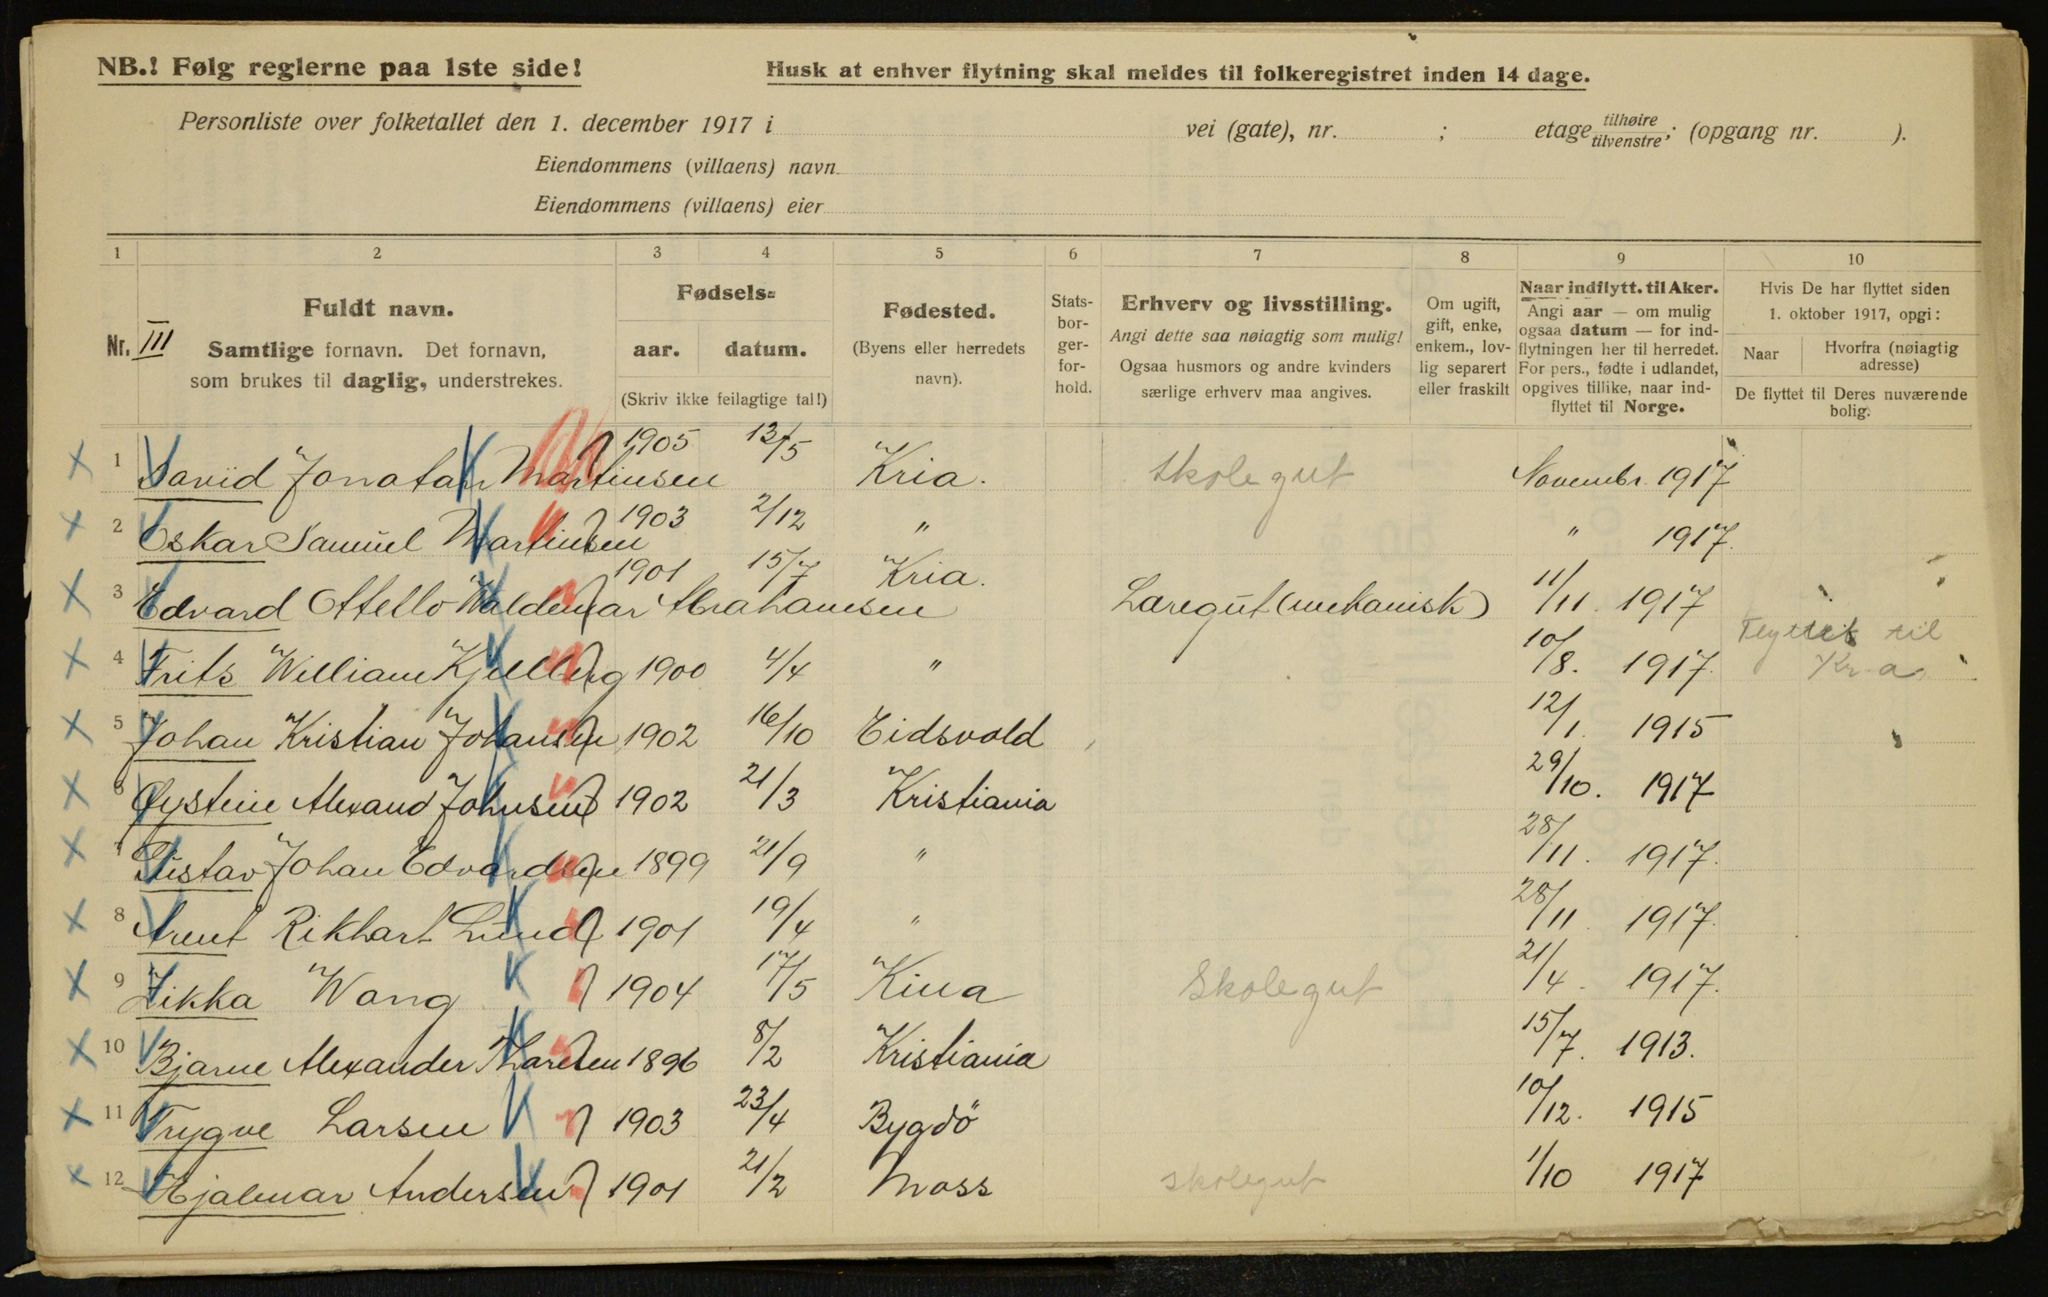 NB.! Følg reglerne paa 1ste side!
Husk at enhver flytning skal meldes til folkeregistret inden 14 dage.
Personliste over folketallet den 1. december 1917 i vei (gate), nr. ; etage tilhøire/tilvenstre; (opgang nr. ).
Eiendommens (villaens) navn
Eiendommens (villaens) eier
1 2 3 4 5 6 7 8 9 10
Nr. III
Fuldt navn.
Samtlige fornavn. Det fornavn,
som brukes til daglig, understrekes.
Fødsels-
aar. datum.
(Skriv ikke feilagtige tal!)
Fødested.
(Byens eller herredets
navn).
Stats-
bor-
ger-
for-
hold.
Erhverv og livsstilling.
Angi dette saa nøiagtig som mulig!
Ogsaa husmors og andre kvinders
særlige erhverv maa angives.
Om ugift,
gift, enke,
enkem., lov-
lig separert
eller fraskilt
Naar indflytt. til Aker.
Angi aar — om mulig
ogsaa datum — for ind-
flytningen her til herredet.
For pers., fødte i udlandet,
opgives tillike, naar ind-
flyttet til Norge.
Hvis De har flyttet siden
1. oktober 1917, opgi:
Naar
Hvorfra (nøiagtig
adresse)
De flyttet til Deres nuværende
bolig.
1 David Jonatan Martinsen 1905 12/5 Kria. Skolegut Novembr. 1917
2 Oskar Samuel Martinsen 1903 2/12 " " 1917.
3 Edvard Otello Waldemar Abrahamsen 1901 15/7 Kria. Læregut (mekanisk) 11/11. 1917
4 Frits William Kjellberg 1900 4/4 " 10/8. 1917. Flyttet til
Kr.a.
5 Johan Kristian Johansen 1902 16/10 Eidsvold 12/1. 1915
6 Øystein Alexand Johnsen 1902 21/3 Kristiania 29/10. 1917
7 Gustav Johan Edvardsen 1899 21/9 " 28/11. 1917.
8 Arent Rikhart Lund 1901 19/4 " 28/11 1917.
9 Likka Wang 1904 17/5 Kina Skolegut 21/4. 1917.
10 Bjarne Alexander Thoresen 1896 8/2 Kristiania 15/7. 1913.
11 Trygve Larsen 1903 23/4 Bygdö 10/12. 1915
12 Hjalmar Andersen 1901 21/2 Moss skolegut 1/10 1917